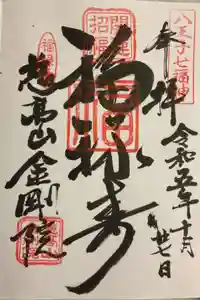 八王子七福神
奉拝 令和五年十月廿七日
開運
招福
福禄寿
慈高山金剛院